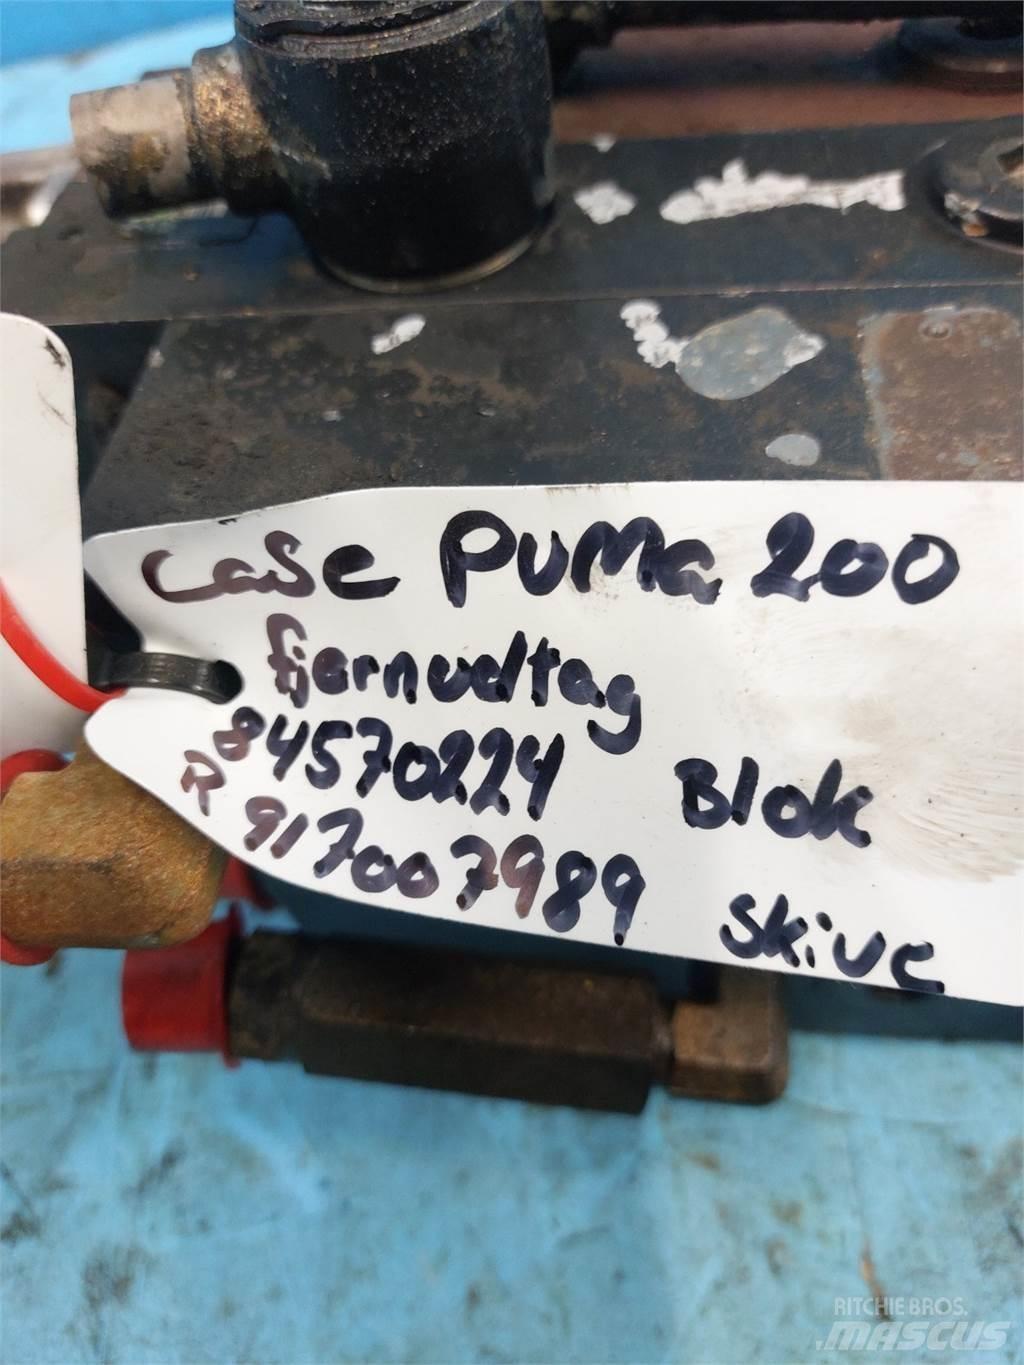 case PUMa 200
fjernudtag
84570224 Blok
R 917007989 skive
RITCHIE BROS.
MASCUS